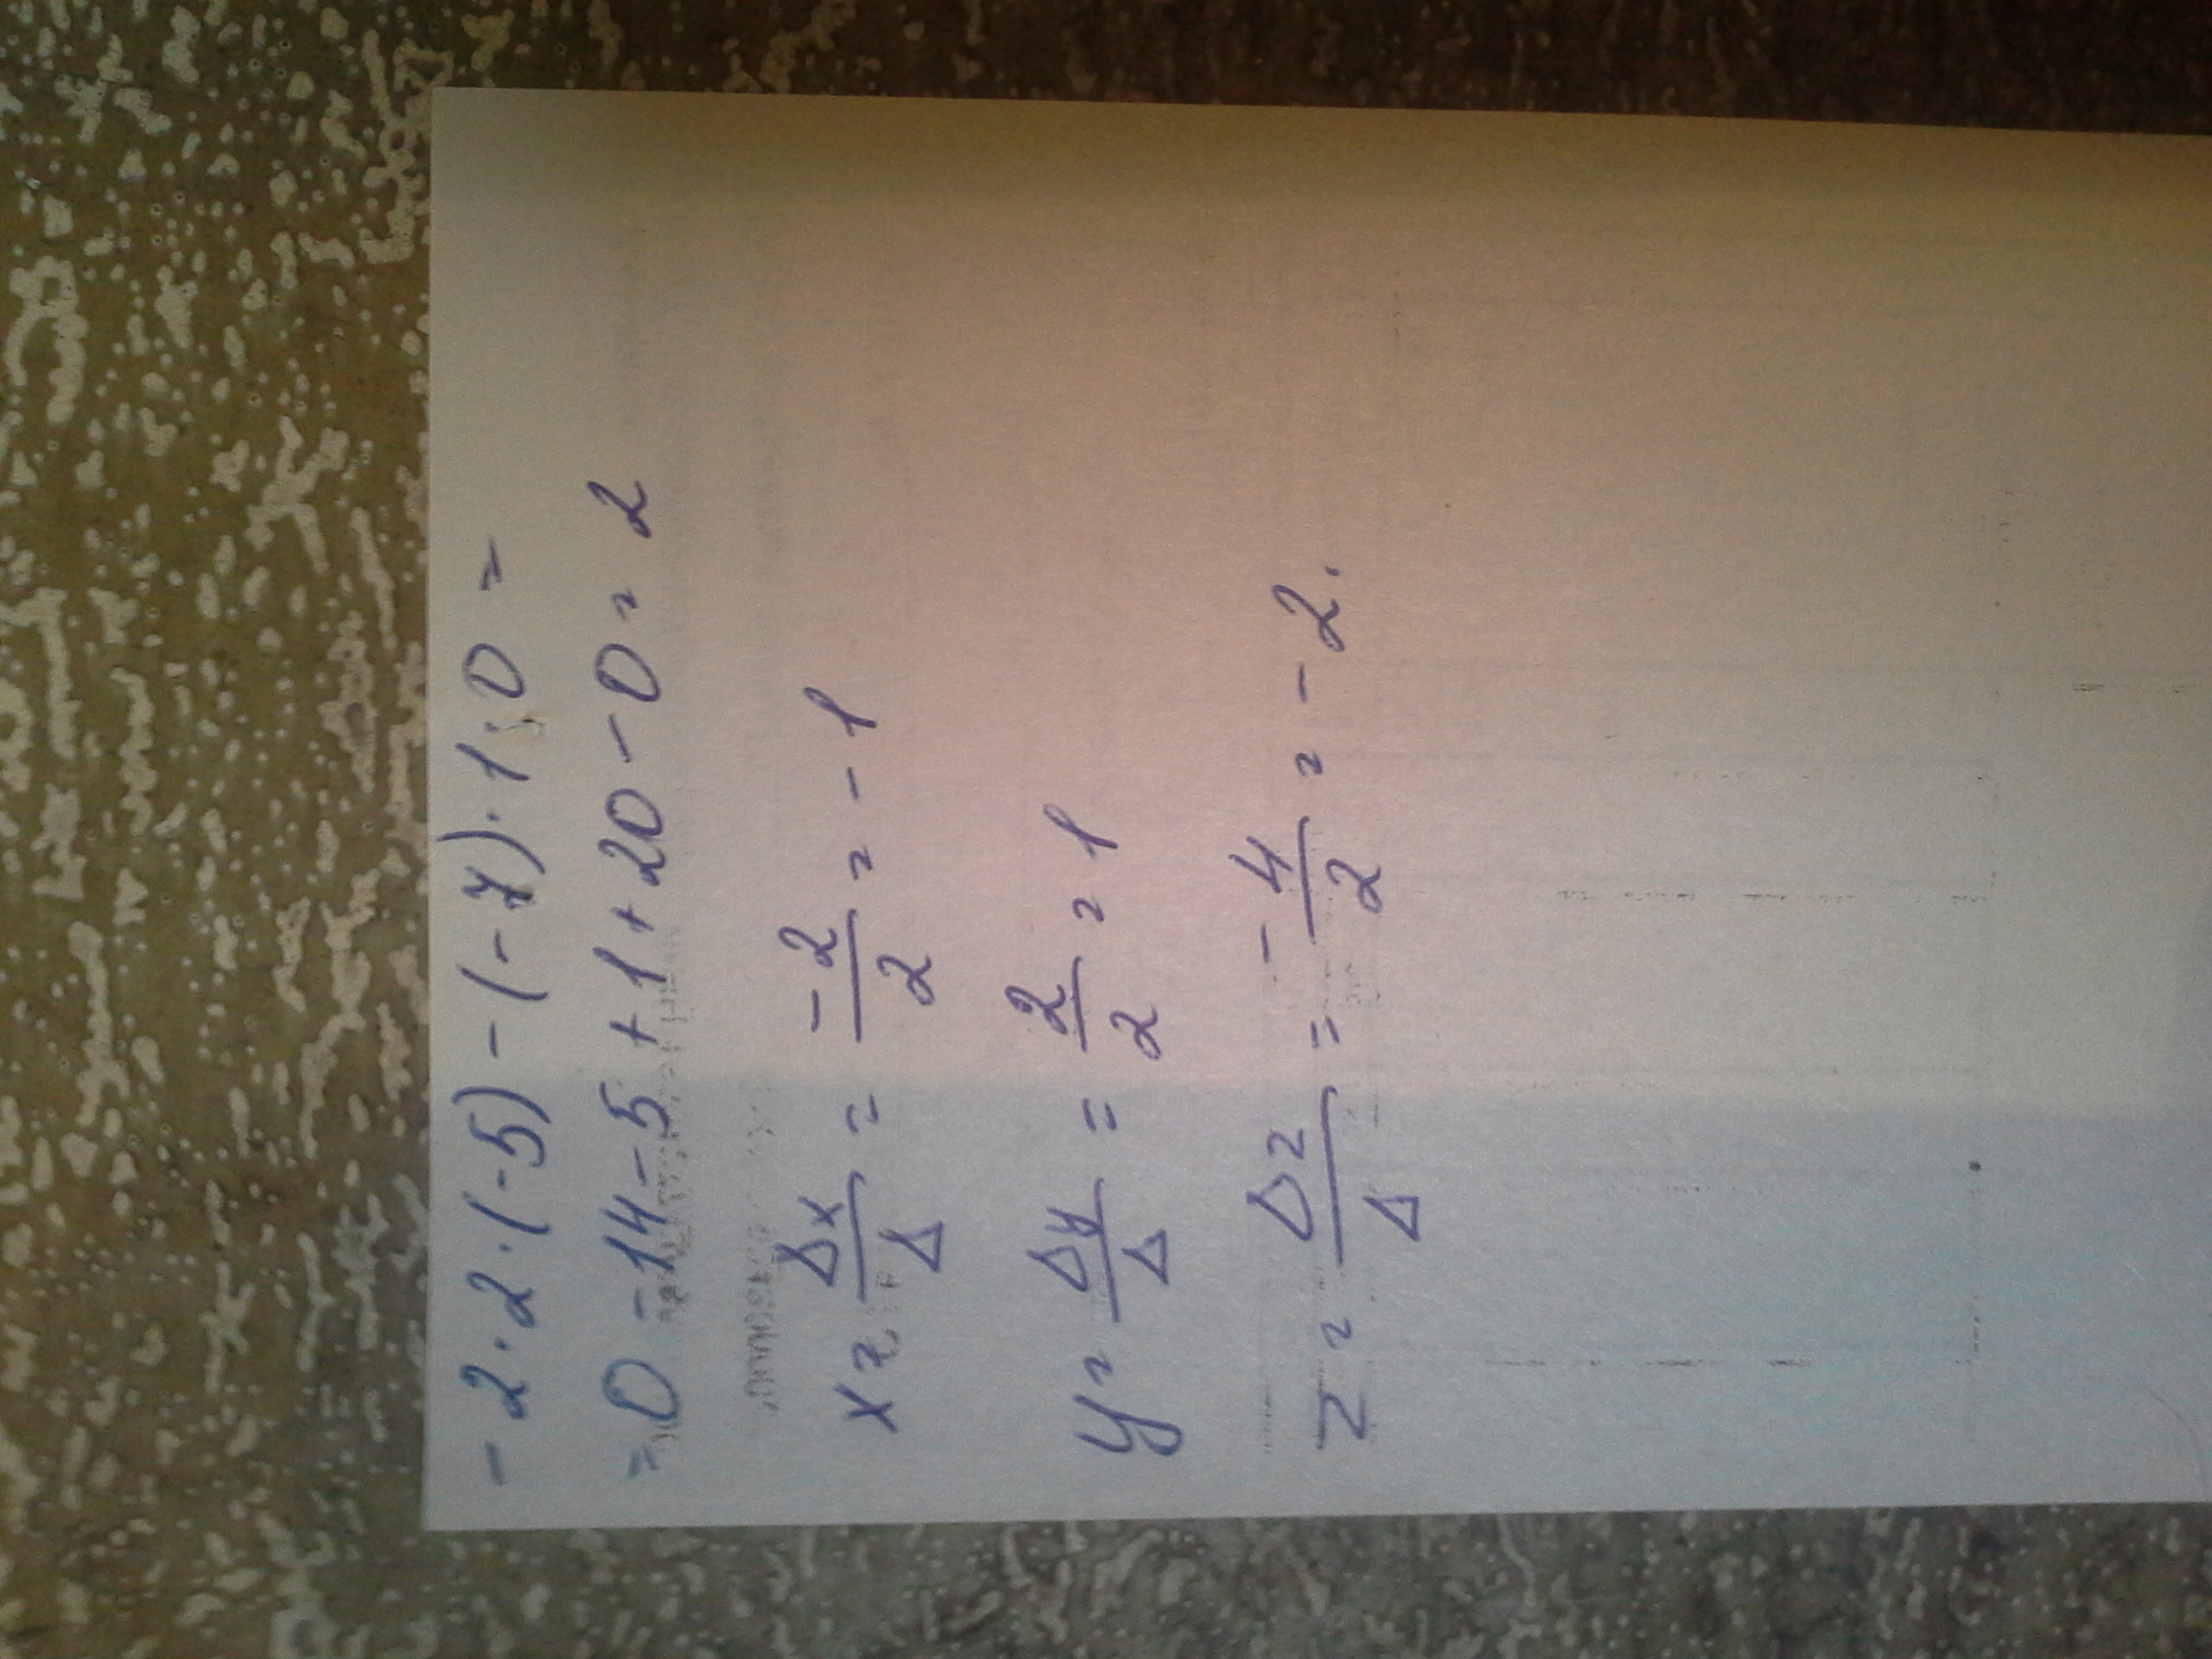 - 2 · 2 · (-5) - (-7) · 1 · 0 =
= 0 - 14 - 5 + 1 + 20 - 0 = 2
x = Δx/Δ = -2/2 = -1
y = Δy/Δ = 2/2 = 1
z = Δz/Δ = -4/2 = -2.